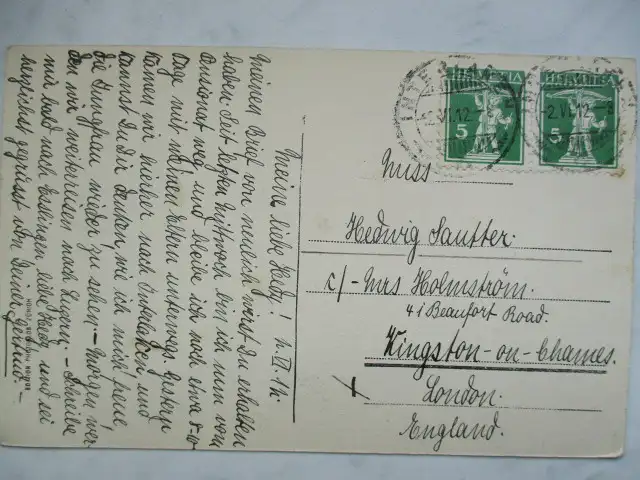 Meine liebe Hedy! 1. VI. 12.
Meinen Brief von neulich wirst Du erhalten
haben. Seit letzten Mittwoch bin ich nun von
weg und bleibe ich noch etwa 8-10
Tage mit meinen Eltern unterwegs. Gestern
kamen wir hierher nach Interlaken und
kannst Du dir denken, wie ich mich freue,
die Jungfrau wieder zu sehen. – Morgen wer-
den wir weiterreisen nach – Schreibe
mir bald nach Esslingen liebe Hedy und sei
herzlichst gegrüsst von Deiner Gertrud. –
HELVETIA
5
HELVETIA
5
-2.VI.12
-2.VI.12.-8
Miss
Hedwig Sautter.
c/- Mrs Holmström.
41 Beaufort Road.
Kingston-on-Thames.
London.
England.